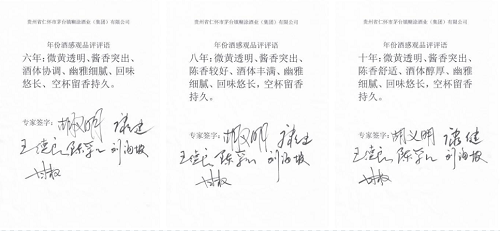 贵州省仁怀市茅台镇顺涂酒业（集团）有限公司
年份酒感观品评评语
六年：微黄透明、酱香突出、
酒体协调、幽雅细腻、回味
悠长，空杯留香持久。
专家签字：胡义明
王德良 陈孚 刘海坡
贵州省仁怀市茅台镇顺涂酒业（集团）有限公司
年份酒感观品评评语
八年：微黄透明、酱香突出、
陈香较好、酒体丰满、幽雅
细腻、回味悠长，空杯留香
持久。
专家签字：胡义明
王德良 陈孚 刘海坡
贵州省仁怀市茅台镇顺涂酒业（集团）有限公司
年份酒感观品评评语
十年：微黄透明、酱香突出、
陈香舒适、酒体醇厚、幽雅
细腻、回味悠长，空杯留香
持久。
专家签字：胡义明
王德良 陈孚 刘海坡